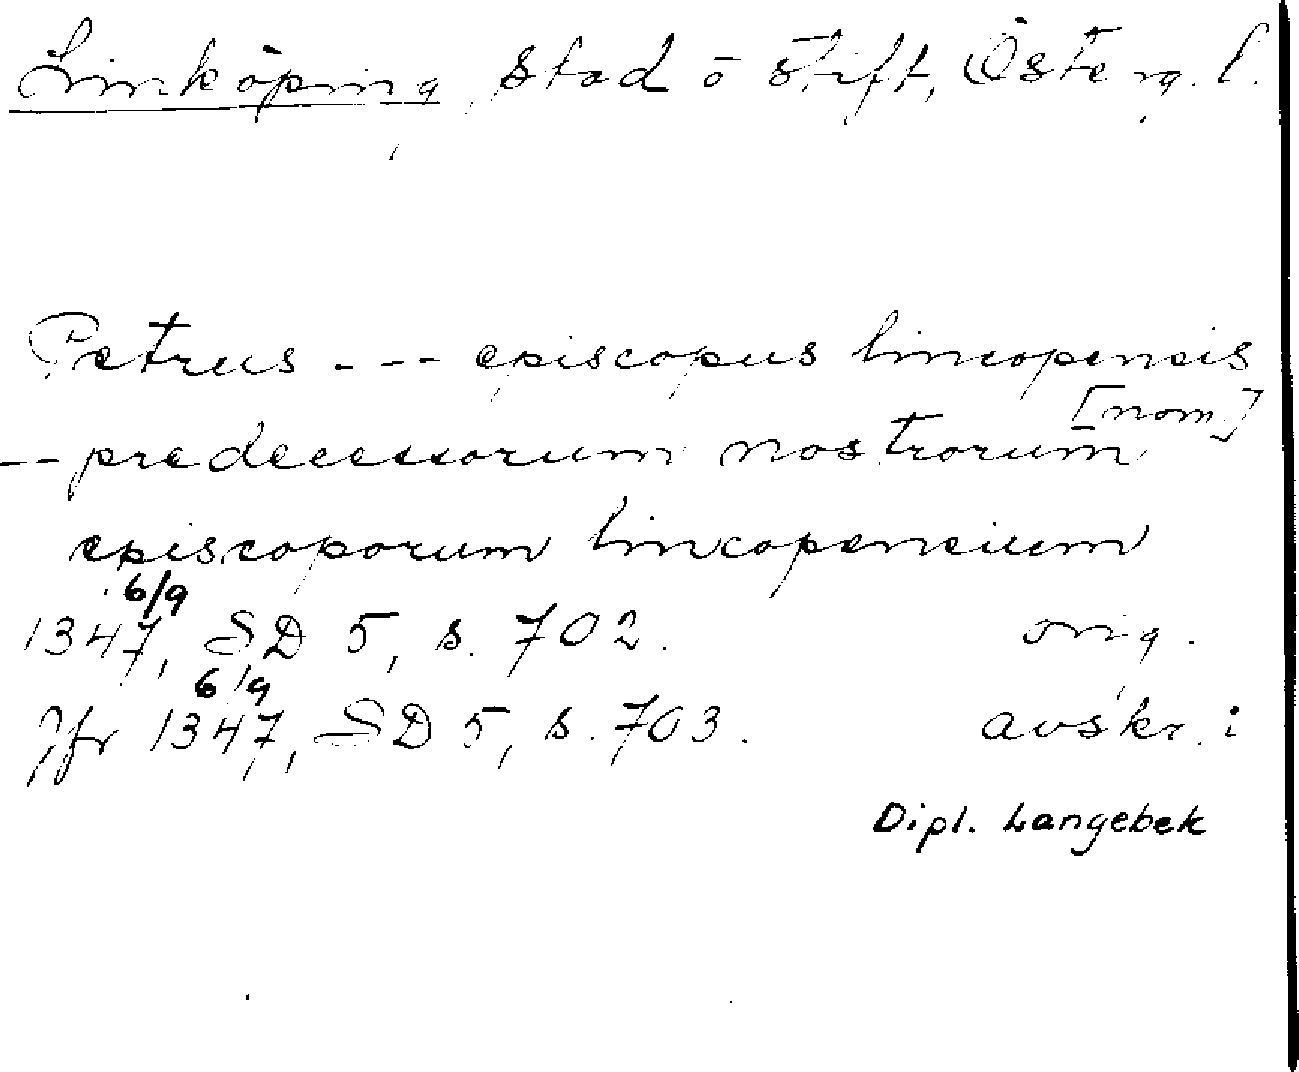 Linköping, stad o stift, Österg. l.
Petrus --- episcopus lincopensis
[nom]
-- predecessorum nostrorum
episcoporum lincopensium
6/9
1347, SD 5, s. 702. orig.
6/9
Jfr 1347, SD 5, s. 703. avskr. i
Dipl. Langebek